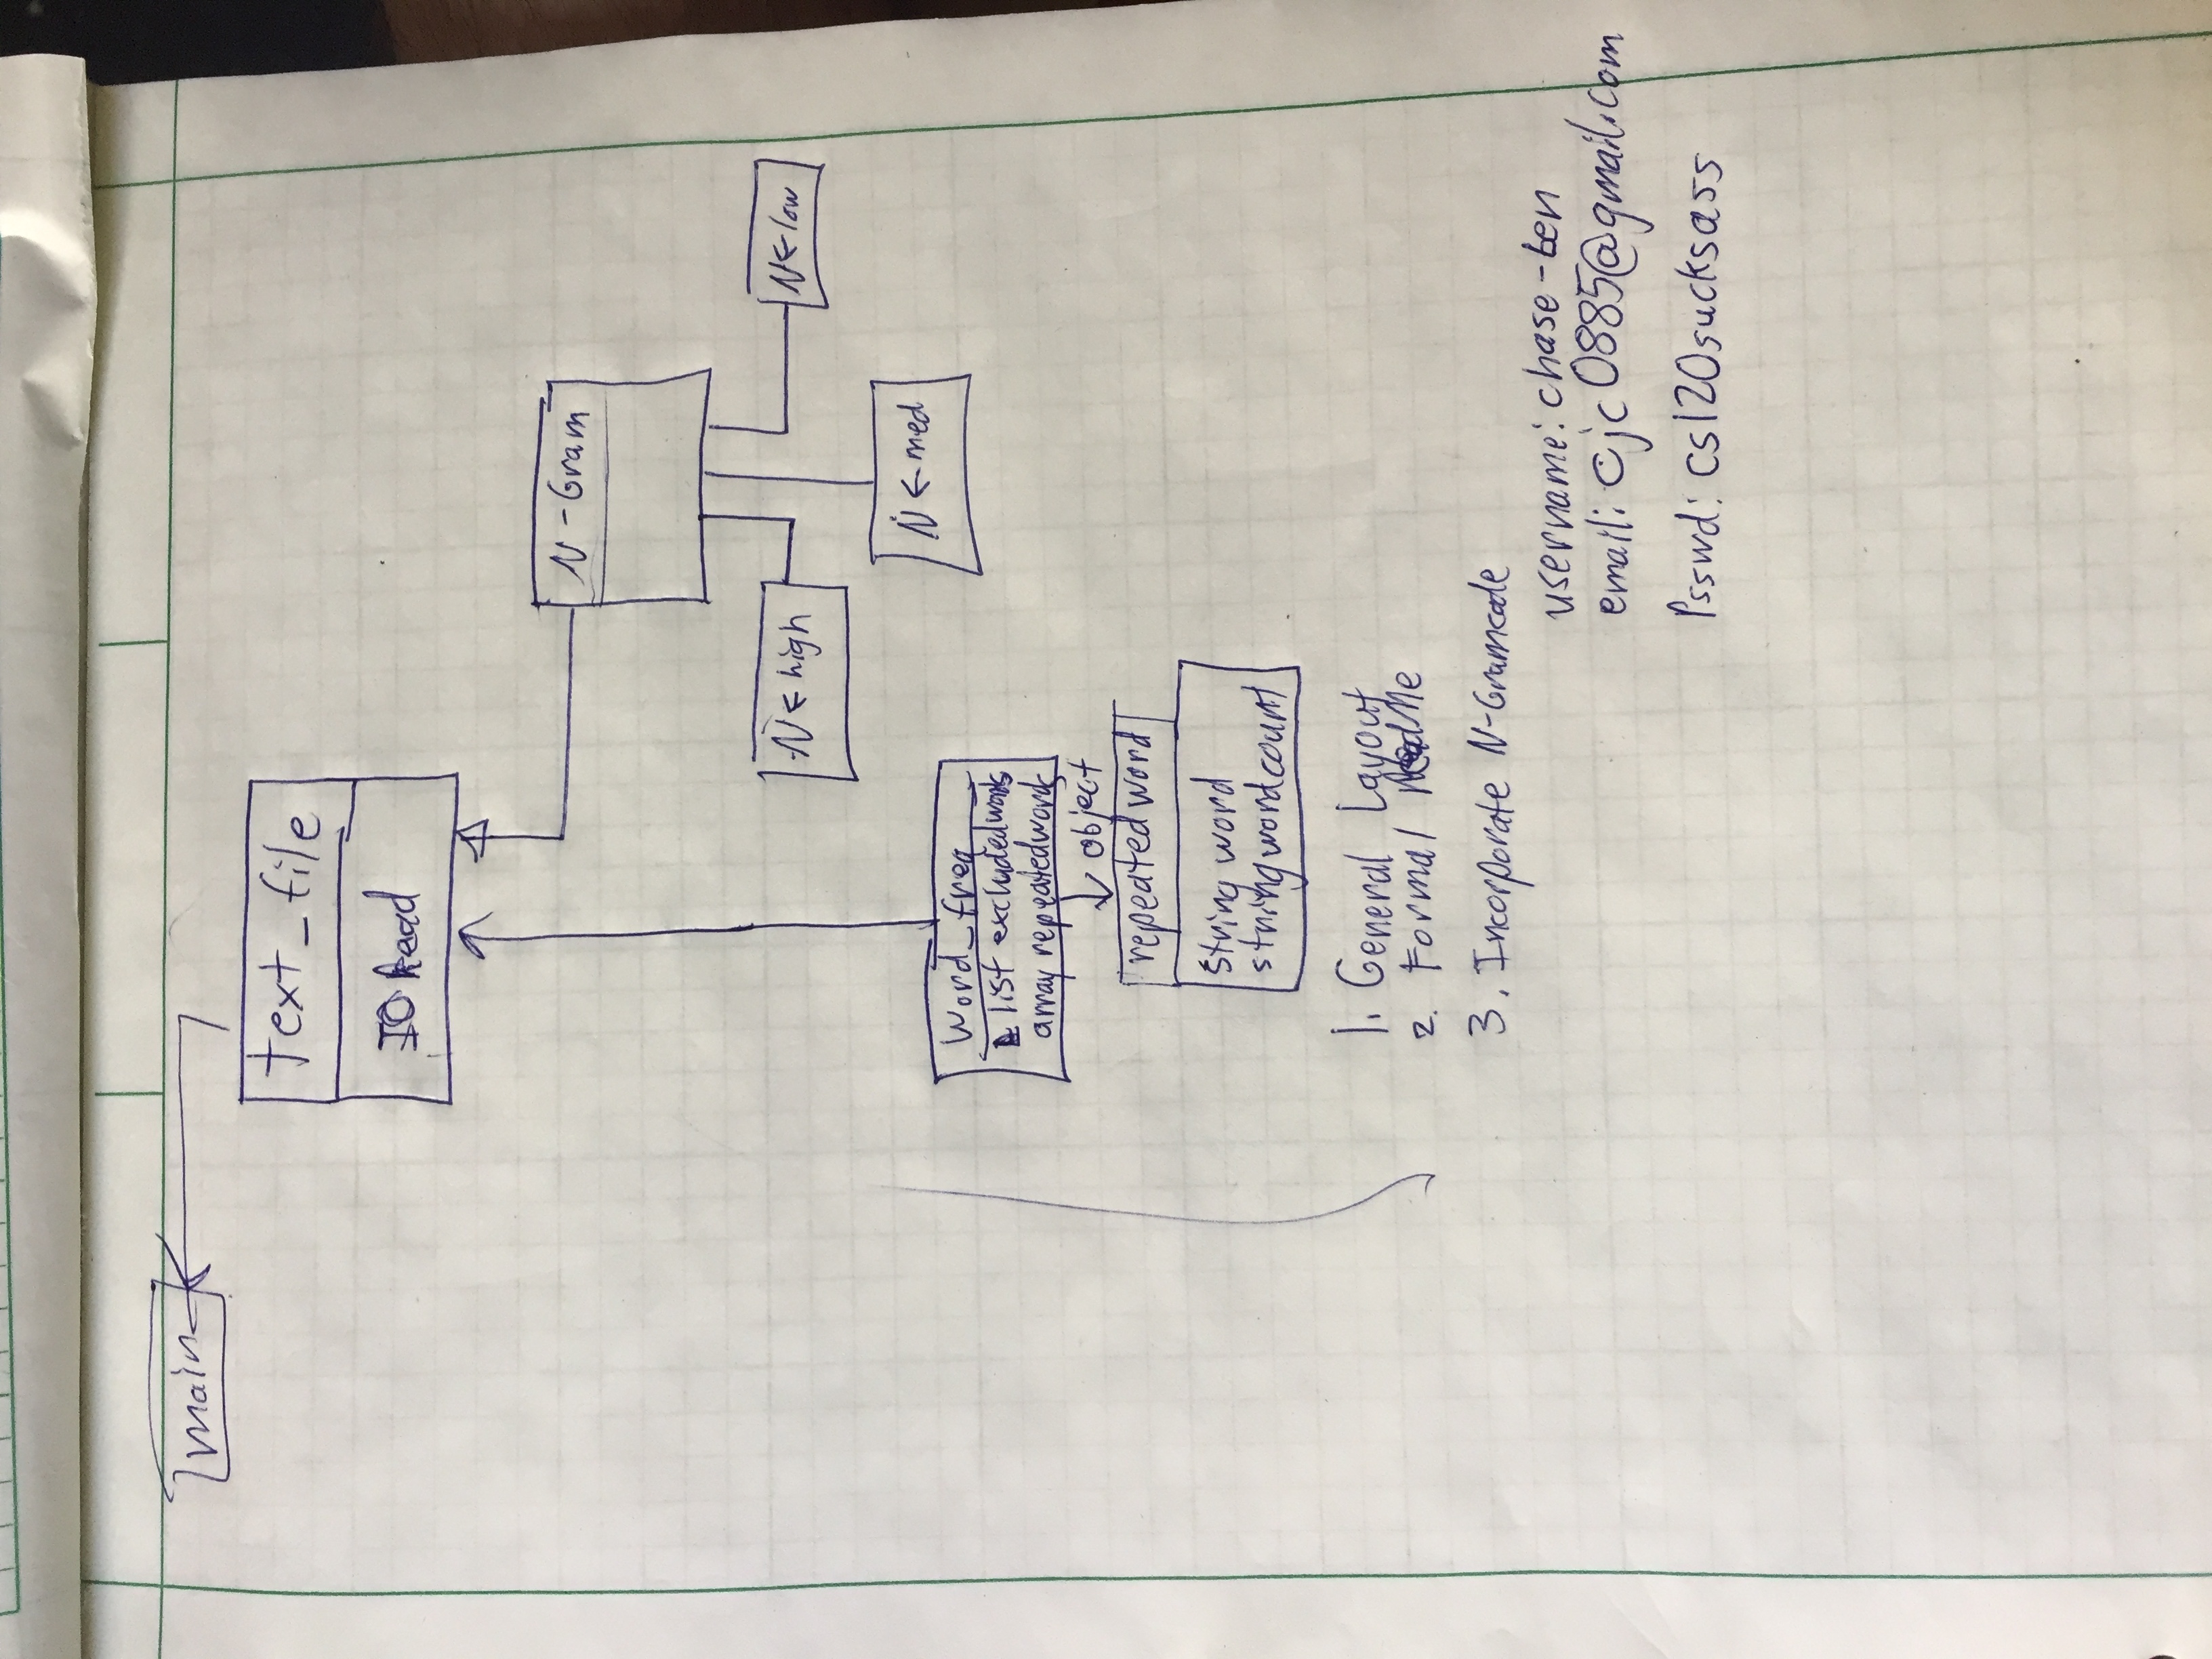 main
text_file
IO Read
N-Gram
N ← high
N ← low
N ← med
Word_freq
list excludedwords
array repeatedwords
object
repeated word
string word
string wordcount
1. General Layout
2. Formal ReadMe
3. Incorporate N-Gramcode
username: chase-ben
email: cjc0885@gmail.com
Psswd: cs120sucksass